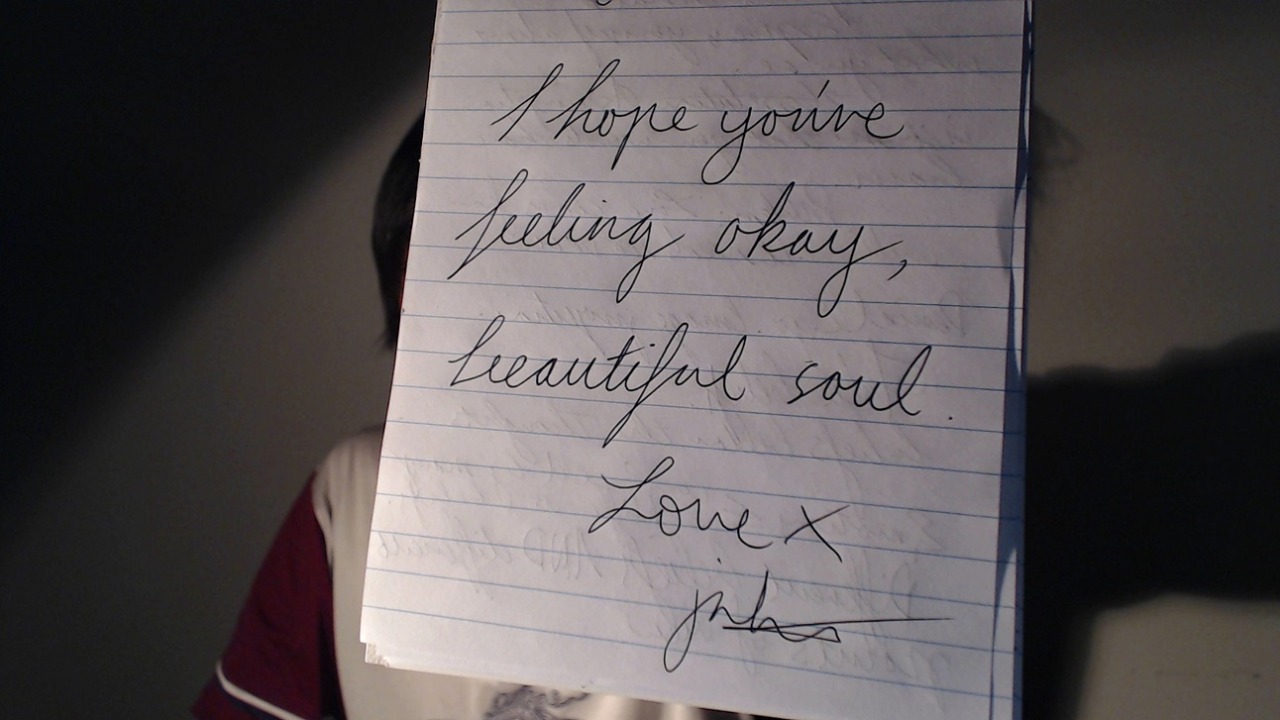 I hope you're
feeling okay,
beautiful soul.
Love X